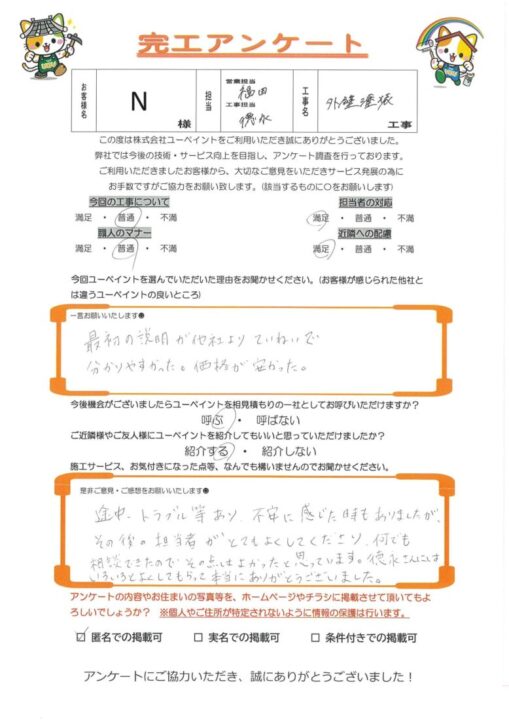 完工アンケート
お客様名 N 様 担当 営業担当 福田 工事担当 徳永 工事名 外壁塗装 工事
この度は株式会社ユーペイントをご利用いただき誠にありがとうございました。
弊社では今後の技術・サービス向上を目指し、アンケート調査を行っております。
ご利用いただきましたお客様から、大切なご意見をいただきサービス発展の為に
お手数ですがご協力をお願い致します。(該当するものに○をお願いします)
今回の工事について 担当者の対応
満足 ・ 普通 ・ 不満 満足 ・ 普通 ・ 不満
職人のマナー 近隣への配慮
満足 ・ 普通 ・ 不満 満足 ・ 普通 ・ 不満
今回ユーペイントを選んでいただいた理由をお聞かせください。(お客様が感じられた他社と
は違うユーペイントの良いところ)
一言お願いいたします
最初の説明が他社よりていねいで
分かりやすかった。価格が安かった。
今後機会がございましたらユーペイントを相見積もりの一社としてお呼びいただけますか?
呼ぶ ・ 呼ばない
ご近隣様やご友人様にユーペイントを紹介してもいいと思っていただけましたか?
紹介する ・ 紹介しない
施工サービス、お気付きになった点等、なんでも構いませんのでお聞かせください。
是非ご意見・ご感想をお願いいたします
途中、トラブル等あり、不安に感じた時もありましたが、
その後の担当者がとてもよくしてくださり、何でも
相談できたのでその点はよかったと思っています。徳永さんには
いろいろとよくしてもらって本当にありがとうございました。
アンケートの内容やお住まいの写真等を、ホームページやチラシに掲載させて頂いてもよ
ろしいでしょうか? ※個人やご住所が特定されないように情報の保護は行います。
☑ 匿名での掲載可 □ 実名での掲載可 □ 条件付きでの掲載可
アンケートにご協力いただき、誠にありがとうございました!